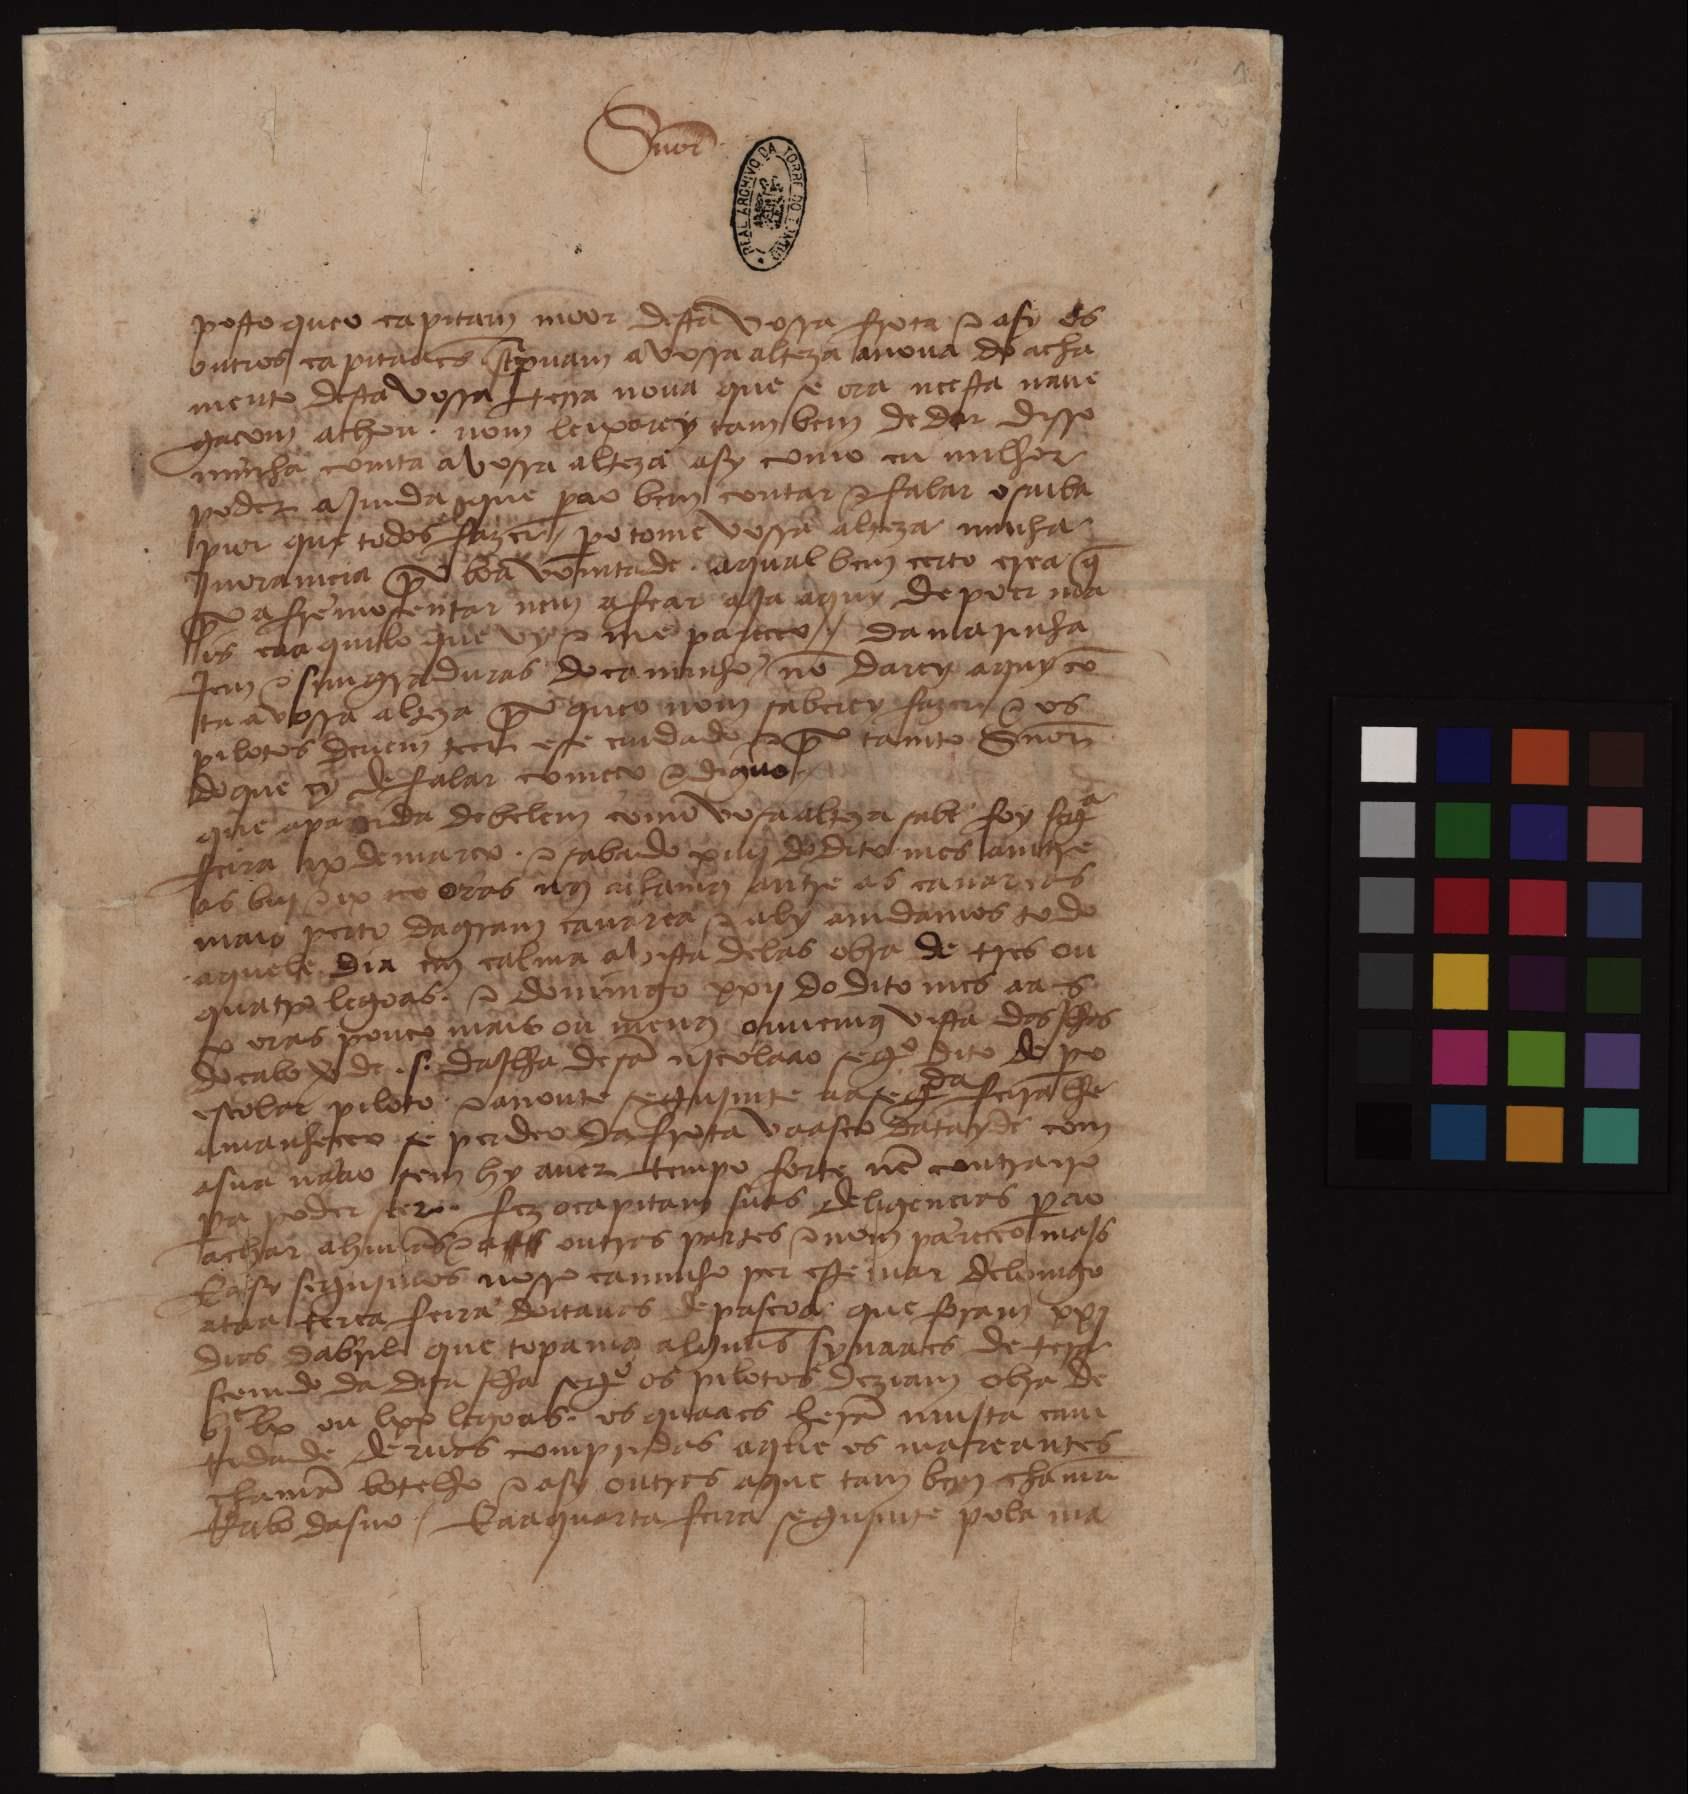 Snõr
REAL ARCHIVO DA TORRE DO TOMBO
posto queo capitam moor desta vossa frota e asy os
outros capitaães screpuam a vossa alteza a noua do acha
mento desta vossa terra noua que se ora neesta naue
gaçom achou. nom leixarey tambem de dar disso
minha comta a vossa alteza asy como eu milhor
poder ajmda que pera o bem contar e falar o saiba
pior que todos fazer / pero tome vossa alteza minha
jnoramçia por boa vomtade. aqual bem çerto crea q̃
por afremosentar nem afear aja aquy de poer ma
is ca aquilo que vy e me pareçeo / da marinha
jem e simgraduras do caminho / nõ darey aquy cõ
ta a vossa alteza por queo nom saberey fazer e os
pilotos deuem teer ese cuidado e por tamto Snõr
do que ey de falar começo e diguo /
que apartida debelem como vosa alteza sabe foy segª
feira ix demarço. e sabado xiiij do dito mes amtre
as biij e ix oras nos achamos antre as canareas
mais perto da gram canarea e aly amdamos todo
aquele dia em calma avista delas obra de tres ou
quatro legoas. e domingo xxij do dito mes aas
x oras pouco mais ou menos ouuemos vista dasjlhas
do cabo verde .s. dajlha de sã njcolaao segº dito de pº
escolar piloto. e a noute segujmte aasegda feira lhe
amanheçeo se perdeo da frota vaasco datayde com
a sua naao sem hy auer tempo forte nẽ contrairo
pera poder seer. fez o capitam suas deligençias pera o
achar ahũas e a outras partes e nom pareçeo majs
E asy segujmos nosso caminho per este mar delomgo
ataa terça feira doitauas de pascoa que foram xxj
dias dabril que topamos alguũs synaaes de terra
seemdo da dita jlha segº os pilotos deziam obra de
bjᶜ lx ou lxx legoas. os quaaes herã mujta cam
tidade deruas compridas aque os mareantes
chamã botelho e asy outras aque tambem chamã
Rabo dasno / E aa quarta feira segujmte pola ma